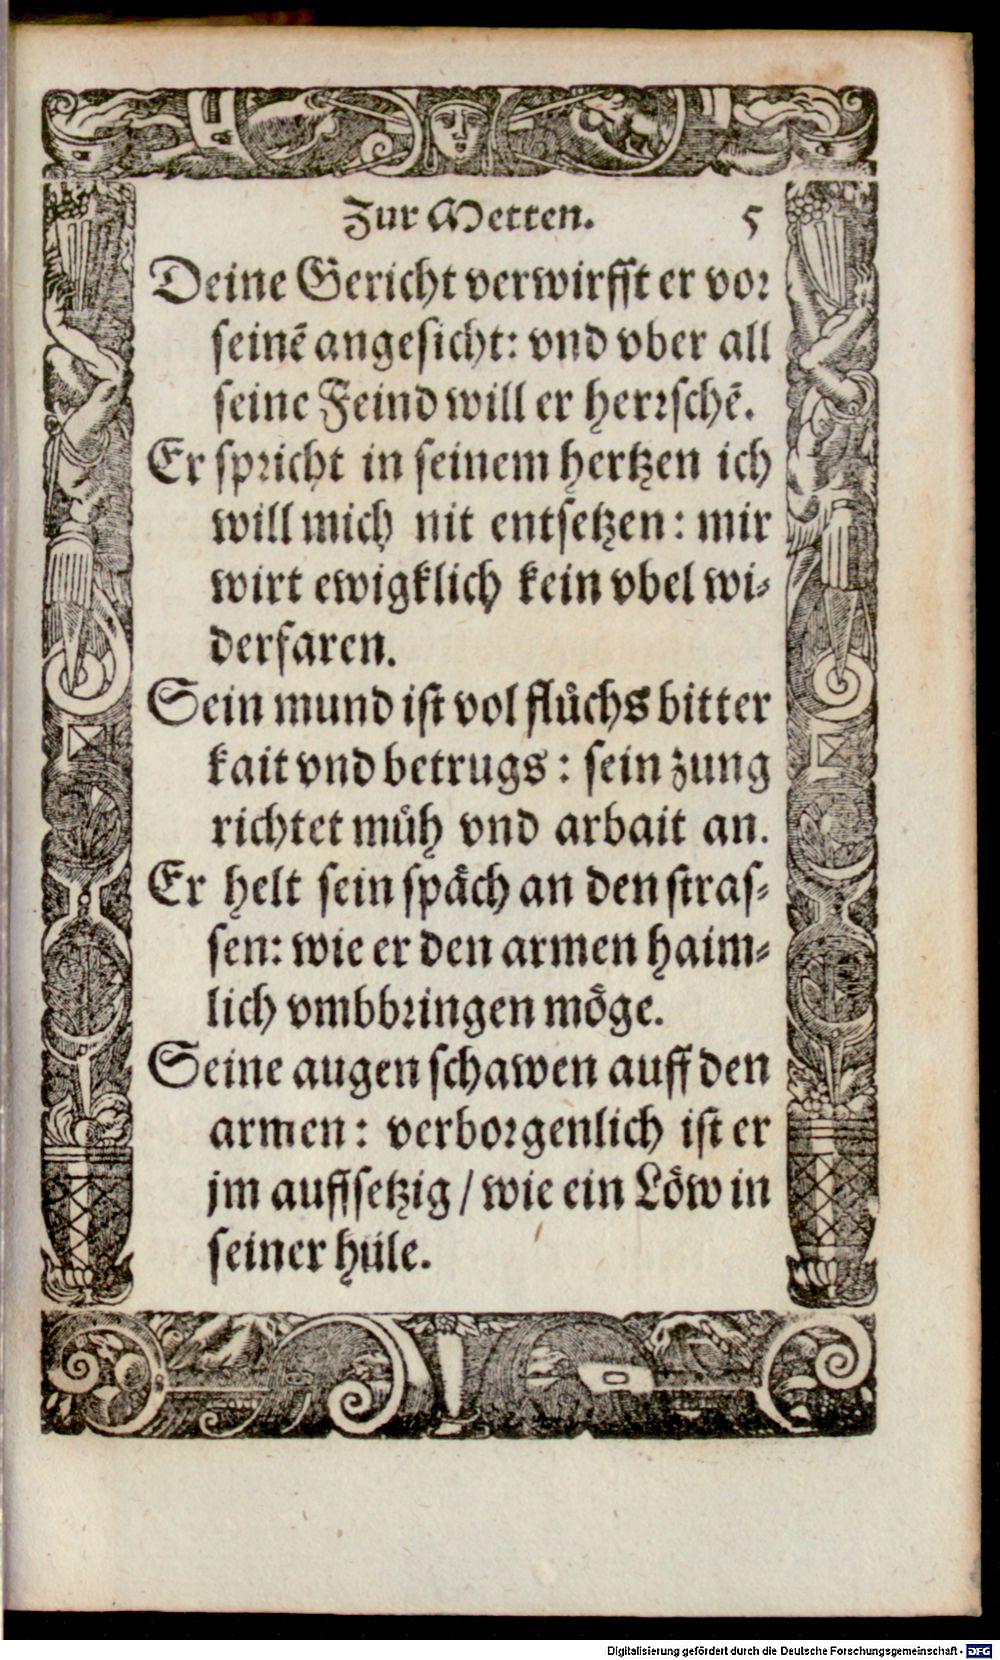 Zur Metten. 5
Deine Gericht verwirfft er vor
seinē angesicht: vnd vber all
seine Feind will er herrschē.
Er spricht in seinem hertzen ich
will mich nit entsetzen: mir
wirt ewigklich kein vbel wi⸗
derfaren.
Sein mund ist vol flůchs bitter
kait vnd betrugs: sein zung
richtet můh vnd arbait an.
Er helt sein späch an den stras⸗
sen: wie er den armen haim⸗
lich vmbbringen möge.
Seine augen schawen auff den
armen: verborgenlich ist er
jm auffsetzig / wie ein Löw in
seiner hüle.
Digitalisierung gefördert durch die Deutsche Forschungsgemeinschaft - DFG